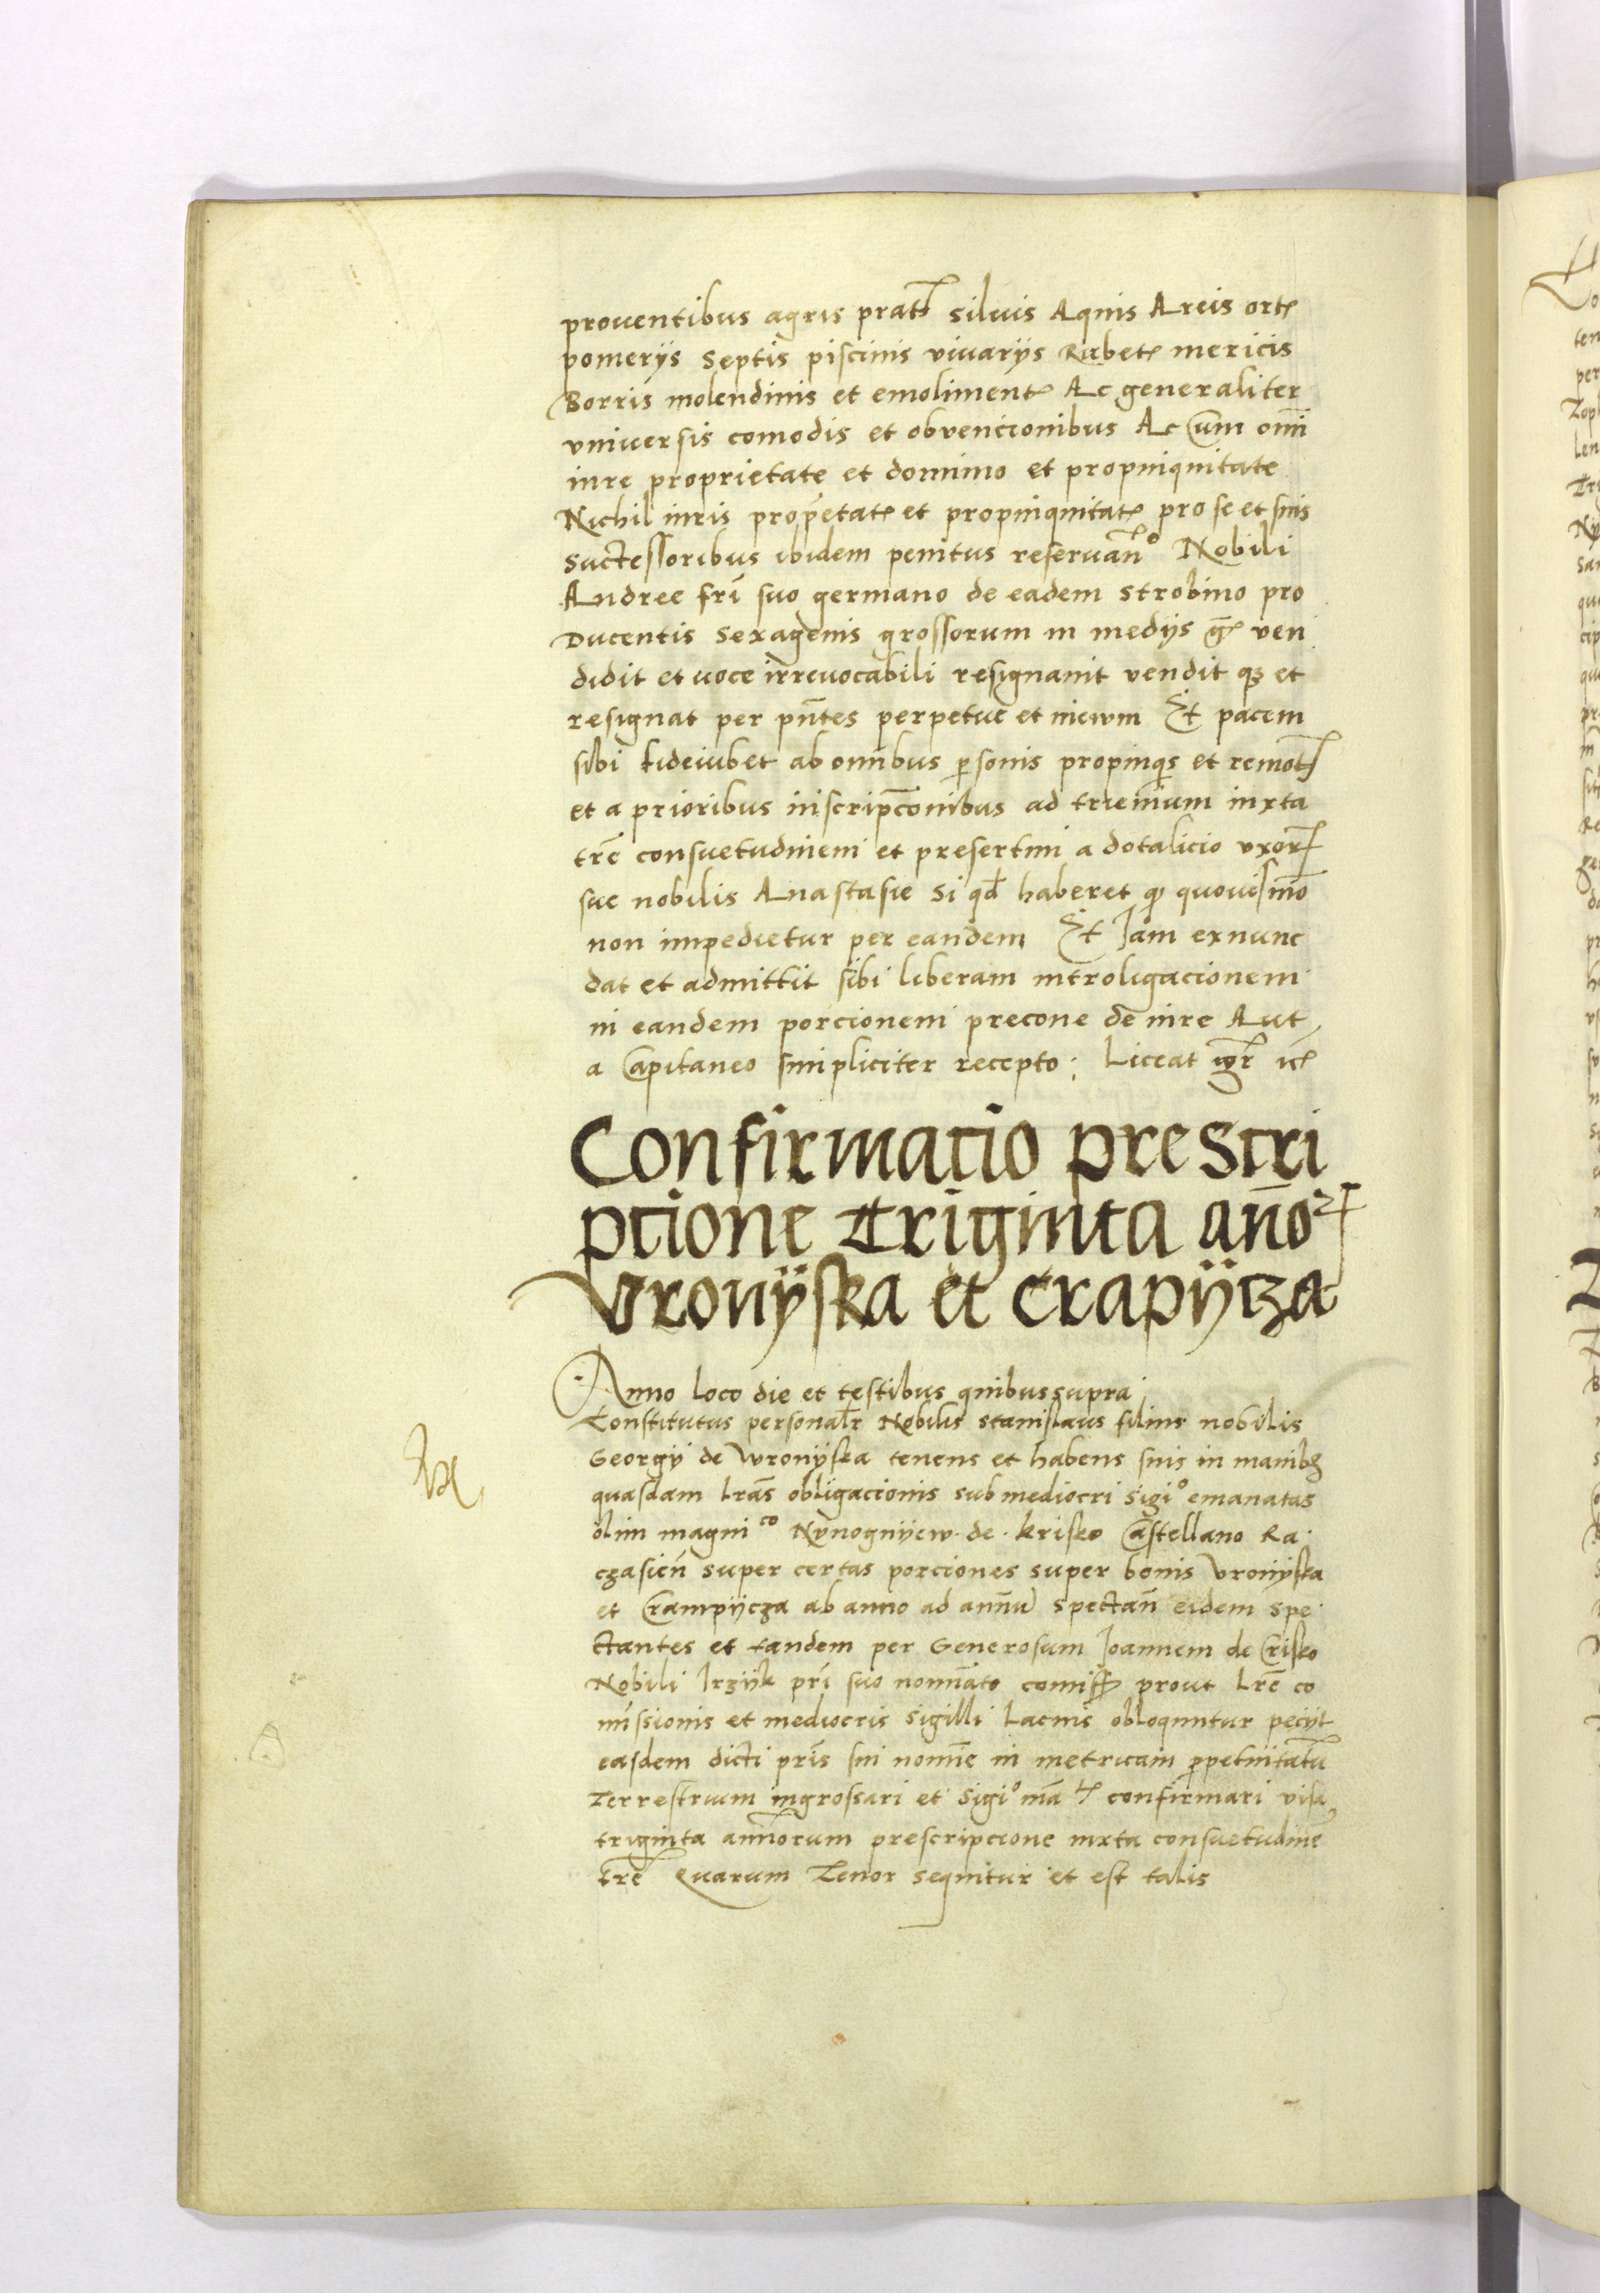 proventibus agris prat silvis Aquis Areis ort
pomerijs Septis piscinis vivarijs Rubet mericis
Borris molendinis et emoliment Ac generaliter
vniversis comodis et obvencionibus Ac Cum omī
iure proprietate et dominio et propinquitate
Nichil iuris propetat et propinquitat pro se et suis
Suctessoribus ibidem penitus reservan° Nobili
Andree frī suo germano de eadem Strobino pro
Ducentis Sexagenis grossorum in medijs g ven
didit et voce irrevocabili resignavit vendit q et
resignat per pn̄tes perpetue et in ewm Et pacem
sibi fideiubet ab omnibus psonis propinqis et remot
et a prioribus inscripc̄onibus ad trienium iuxta
trē consuetudinem et presertim a dotalicio vxor
sue nobilis Anastasie Si qd haberet q quovismo
non impedietur per eandem Et Jam exnunc
dat et admittit sibi liberam introligacionem
in eandem porcionem precone de iure Aut
a Capitaneo simpliciter recepto Liceat
Confirmatio prescri
ptione Triginta año
Vronÿska et Crapÿcza
Anno loco die et testibus quibus supra
Constitutus personalr Nobilis Stanislaus filius nobilis
Georgÿ de Wronÿska tenens et habens suis in manibz
quasdam lrās obligacionis sub mediocri Sigi° emanatas
olim magnico Nynognÿew de krisko Castellano Ra
czasien̄ super certas porciones super bonis Vronÿska
et Crampÿcza ab anno ad annū Spectan̄ eidem Spe
ctantes et tandem per Generosum Joannem de Crisko
Nobili Irzÿk prī suo nominato comiss prout lrē co
missionis et mediocris Sigilli Lacius obloquntur pecÿt
easdem dicti prīs sui nomīe in metricam ppetuitatu
Terrestrium ingrossari et Sigi° ma confirmari visa
triginta annorum prescripcione iuxta consuetudinē
trē Quarum Tenor sequitur et est talis